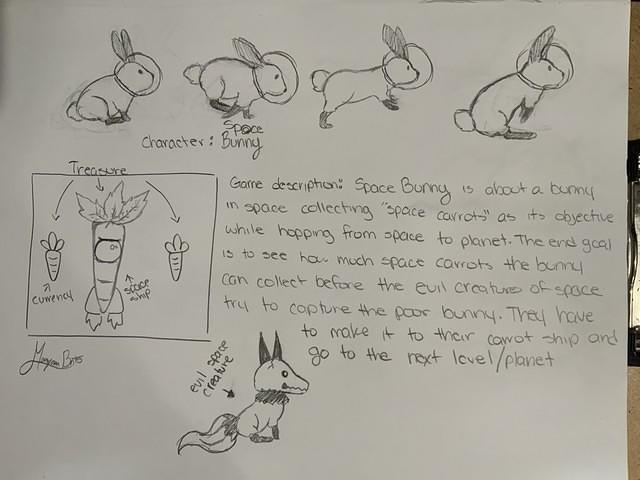 Character: Space
Bunny
Treasure
currency
space
ship
Game description: Space Bunny is about a bunny
in space collecting "space carrots" as its objective
while hopping from space to planet. The end goal
is to see how much space carrots the bunny
can collect before the evil creatures of space
try to capture the poor bunny. They have
to make it to their carrot ship and
go to the next level/planet
evil space
creature